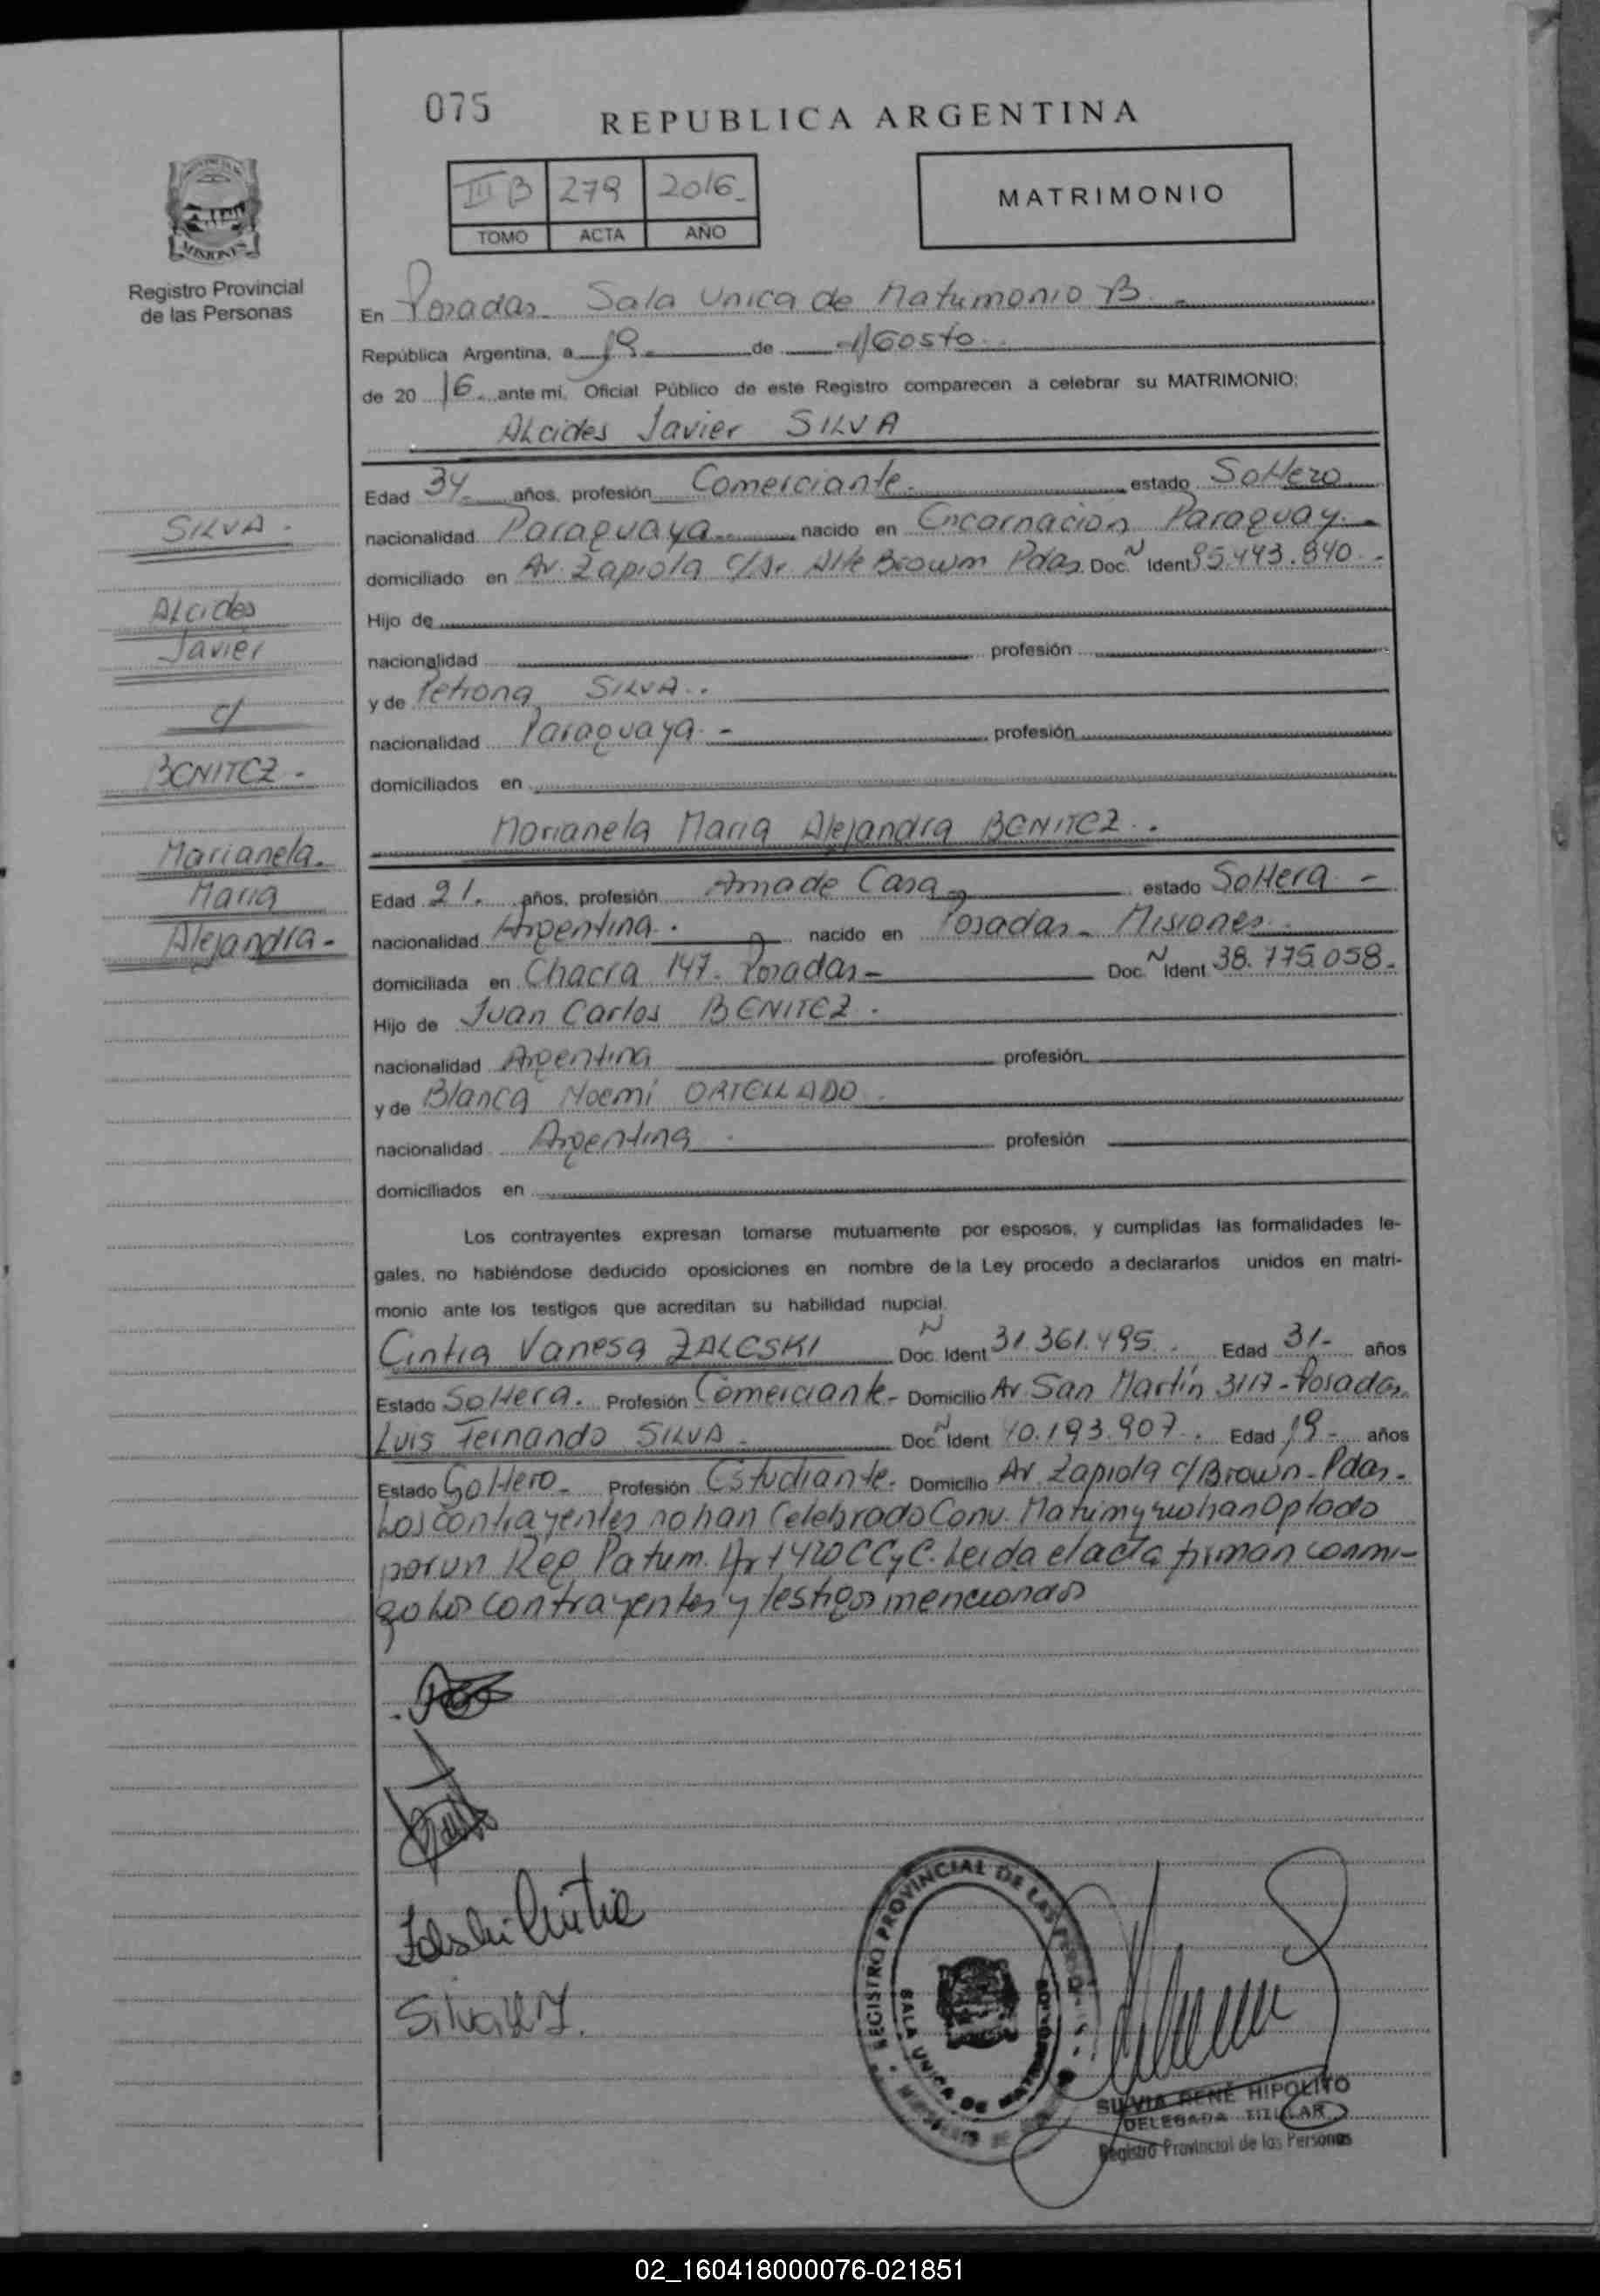 075
REPUBLICA ARGENTINA
III B 279 2016
TOMO ACTA AÑO
MATRIMONIO
MISIONES
Registro Provincial
de las Personas
En Posadas. Sala Unica de Matrimonio B.
República Argentina, a 19 de Agosto
de 20 16 ante mí, Oficial Público de este Registro comparecen a celebrar su MATRIMONIO:
Alcides Javier SILVA
Edad 34 años, profesión Comerciante. estado Soltero
nacionalidad Paraguaya nacido en Encarnacion Paraguay.
domiciliado en Av. Zapiola Alte Brown Pdas. Doc. N Ident 95.443.840
Hijo de
nacionalidad profesión
y de Petrona SILVA.
nacionalidad Paraguaya. profesión
domiciliados en
SILVA.
Alcides
Javier
c/
BENITEZ.
Marianela.
Maria
Alejandra.
Marianela Maria Alejandra BENITEZ.
Edad 21. años, profesión Ama de Casa estado Soltera
nacionalidad Argentina. nacido en Posadas - Misiones
domiciliada en Chacra 147. Posadas Doc. N Ident 38.775.058.
Hijo de Juan Carlos BENITEZ.
nacionalidad Argentina profesión
y de Blanca Noemi ORTELLADO
nacionalidad Argentina. profesión
domiciliados en
Los contrayentes expresan tomarse mutuamente por esposos, y cumplidas las formalidades le-
gales, no habiéndose deducido oposiciones en nombre de la Ley procedo a declararlos unidos en matri-
monio ante los testigos que acreditan su habilidad nupcial.
Cintia Vanesa ZALESKI Doc. N Ident 31.361.495. Edad 31 años
Estado Soltera. Profesión Comerciante - Domicilio Av San Martín 3117 - Posadas
Luis Fernando SILVA. Doc. N Ident 40.193.907. Edad 19 años
Estado Soltero Profesión Estudiante. Domicilio Av. Zapiola c/ Brown - Pdas.
Los contrayentes no han Celebrado Conv. Matrim y no han Optado
por un Reg Patrim. Art 420 CCyC. Leida el acta firman conmi-
go los contrayentes y testigos mencionados
Zaleski Cintia
Silva
REGISTRO PROVINCIAL DE LAS PERSONAS
SALA UNICA DE
SILVIA RENÉ HIPOLITO
DELEGADA TITULAR
Registro Provincial de las Personas
02_160418000076-021851